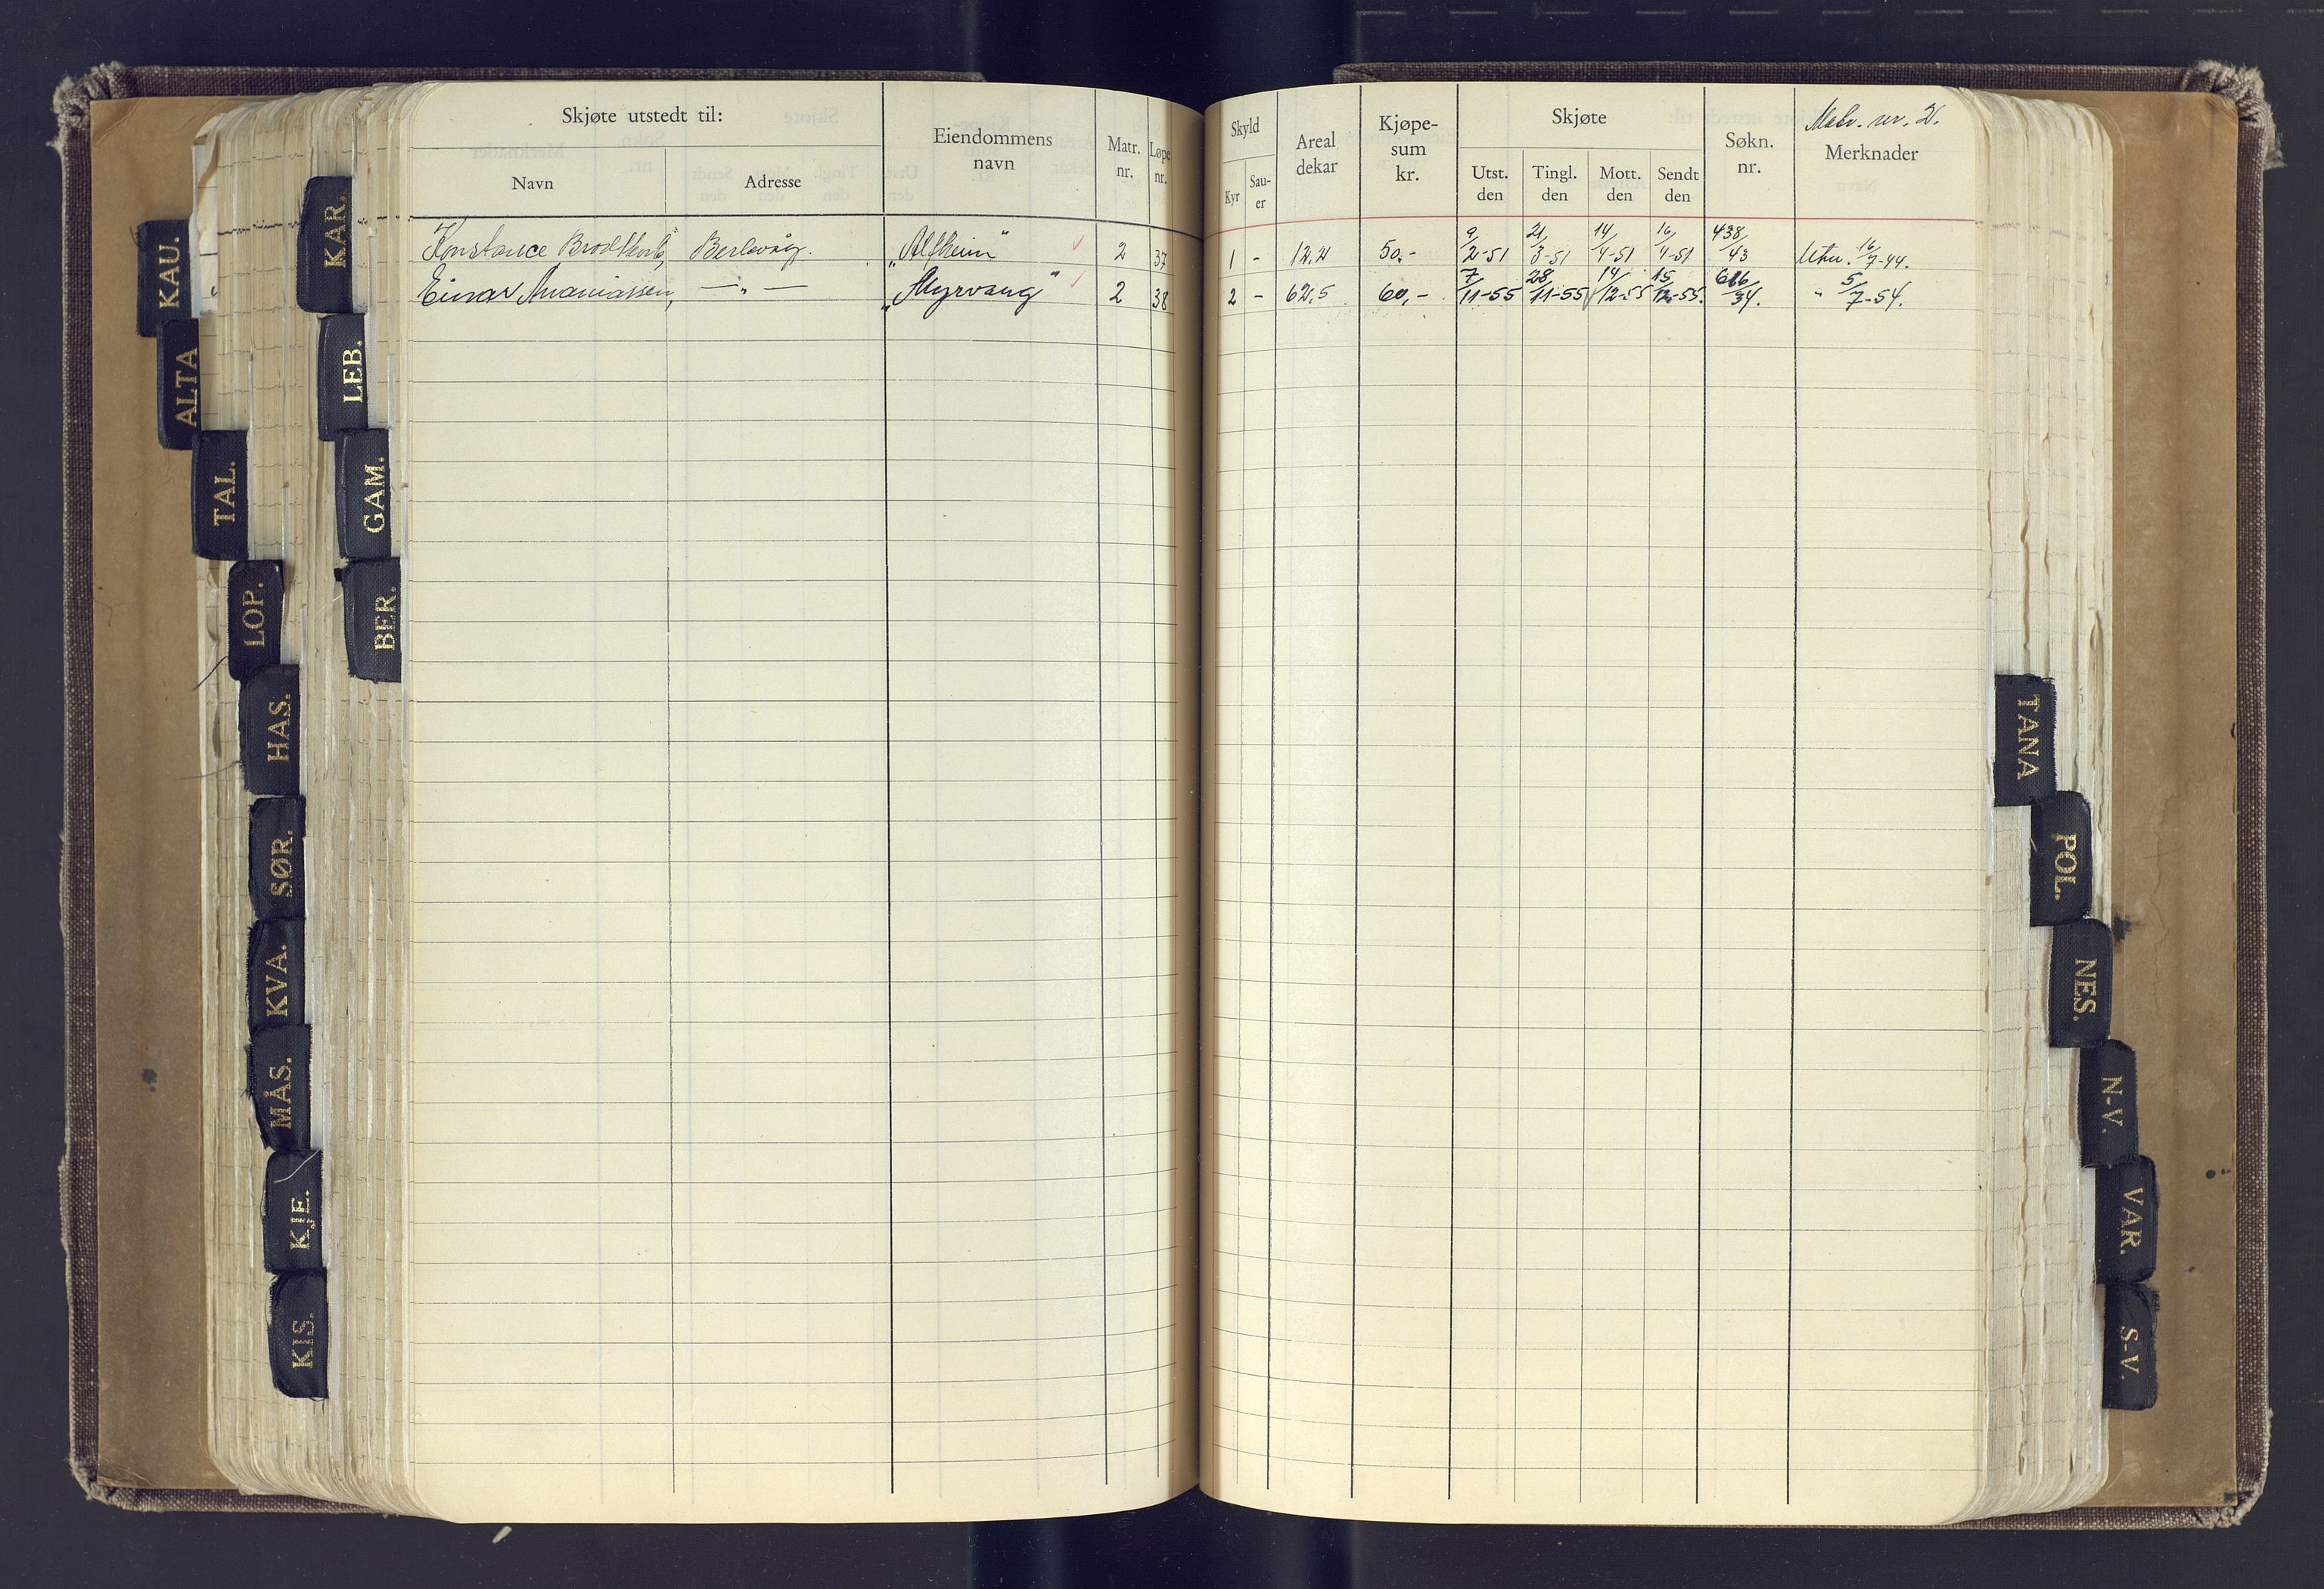 Skjøte utstedt til:
Navn
Adresse
Eiendommens
navn
Matr.
nr.
Løpe
nr.
Skyld
Kyr
Sau-
er
Areal
dekar
Kjøpe-
sum
kr.
Skjøte
Utst.
den
Tingl.
den
Mott.
den
Sendt
den
Søkn.
nr.
Matr. nr. 2.
Merknader
Konstance Berlevåg. „Alfheim" 2 37 1 - 12.2 50.- 9/2-51 21/3-51 14/4-51 16/4-51 438/43 Utv. 16/7-44.
Einar Ananiassen, —„— „Myrvang" 2 38 2 - 62,5 60,- 7/11-55 28/11-55 14/12-55 15/12-55. /54. " 5/7-54.
KAU.
ALTA
TAL.
LOP.
HAS.
SØR.
KVA.
MÅS.
KJE.
KIS.
KAR.
LEB.
GAM.
BER.
TANA
POL.
NES.
N-V.
VAR.
S-V.